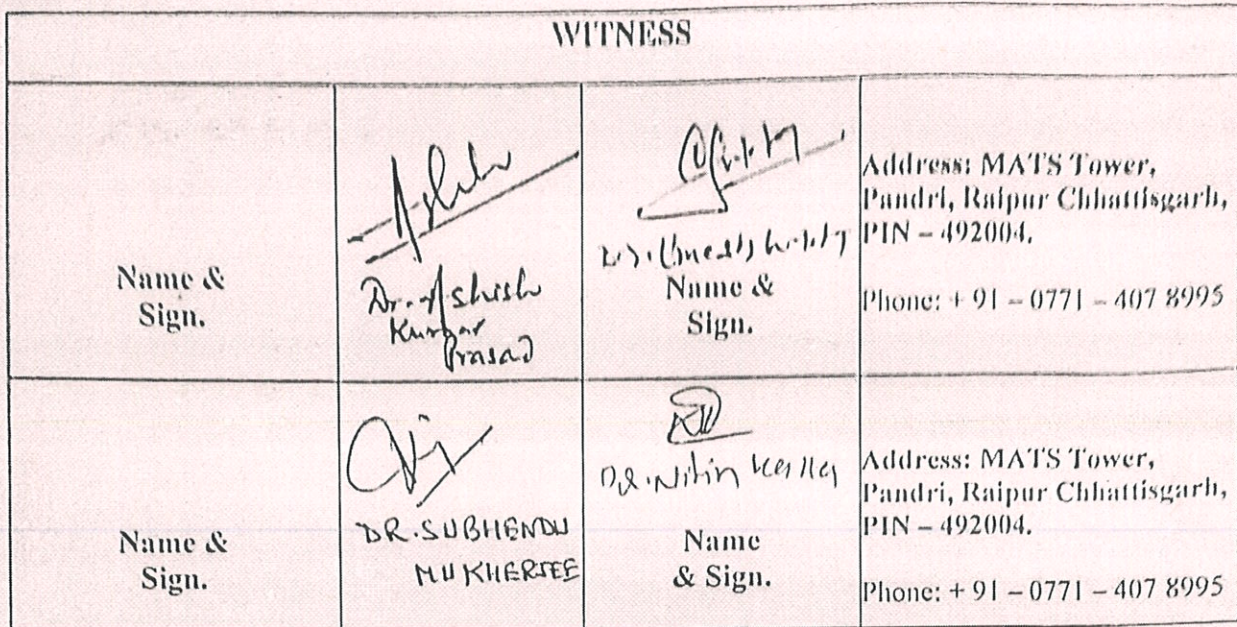 WITNESS
Name &
Sign.
Dr. Ashish
Kumar
Prasad
Name &
Sign.
Address: MATS Tower,
Pandri, Raipur Chhattisgarh,
PIN – 492004.
Phone: + 91 – 0771 – 407 8995
Name &
Sign.
DR. SUBHENDU
MUKHERJEE
Dr. Nitin
Name
& Sign.
Address: MATS Tower,
Pandri, Raipur Chhattisgarh,
PIN – 492004.
Phone: + 91 – 0771 – 407 8995